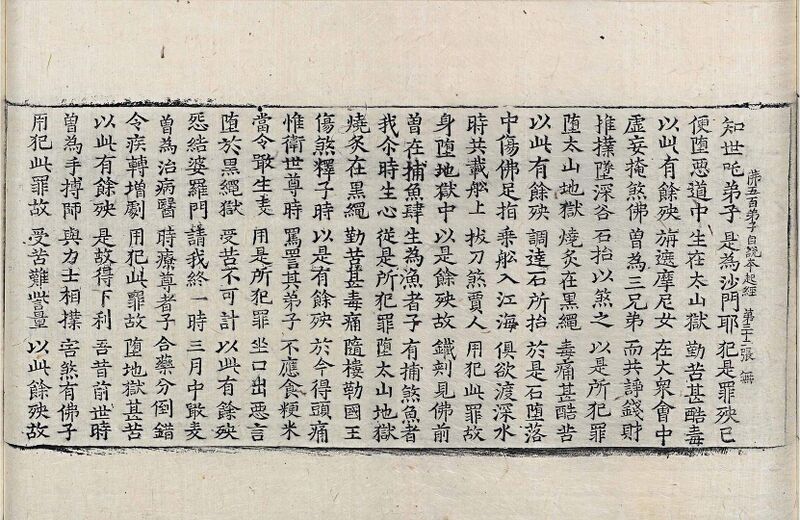 知世吒弟子 是為沙門耶 犯是罪殃已
弟五百弟子自說本起經 第三十二張 無
便墮惡道中 生在太山獄 勤苦甚酷毒
以此有餘殃 旃遮摩尼女 在大衆會中
虛妄掩煞佛 曾為三兄弟 而共諍錢財
推撲墜深谷 石拍以煞之 以是所犯罪
墮太山地獄 燒炙在黑繩 毒痛甚酷苦
以此有餘殃 調達石所拍 於是石墮落
中傷佛足指 乘船入江海 俱欲渡深水
時共載船上 拔刀煞賈人 用犯此罪故
身墮地獄中 以是餘殃故 鐵刾見佛前
曾在捕魚肆 生為漁者子 有捕煞魚者
我尒時生心 從是所犯罪 墮太山地獄
燒炙在黑繩 勤苦甚毒痛 隨樓勒國王
傷煞釋子時 以是有餘殃 於今得頭痛
惟衛世尊時 罵詈其弟子 不應食粳米
當令噉生麦 用是所犯罪 坐口出惡言
墮於黑繩獄 受苦不可計 以此有餘殃
惒結婆羅門 請我終一時 三月中噉麦
曾為治病醫 時療尊者子 合藥分倒錯
令疾轉增劇 用犯此罪故 墮地獄甚苦
以此有餘殃 是故得下利 吾昔前世時
曽為手搏師 與力士相撲 害煞有佛子
用犯此罪故 受苦難訾量 以此餘殃故